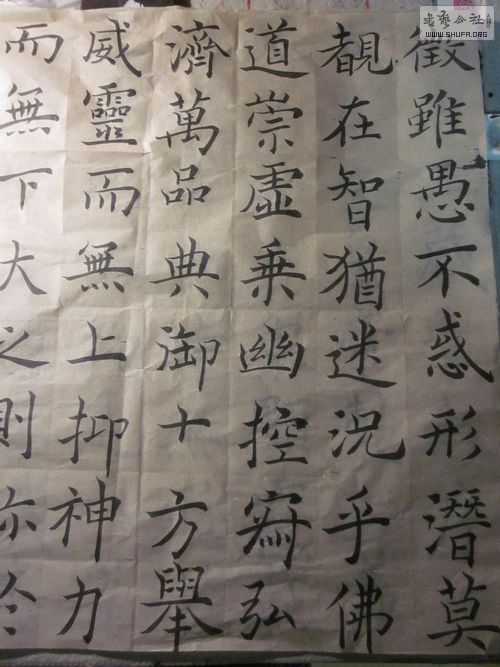 書藝公社
WWW.SHUFA.ORG
徵雖愚不惑形潛莫
覩在智猶迷況乎佛
道崇虛乘幽控寂弘
濟萬品典御十方舉
威靈而無上抑神力
而無下大之則